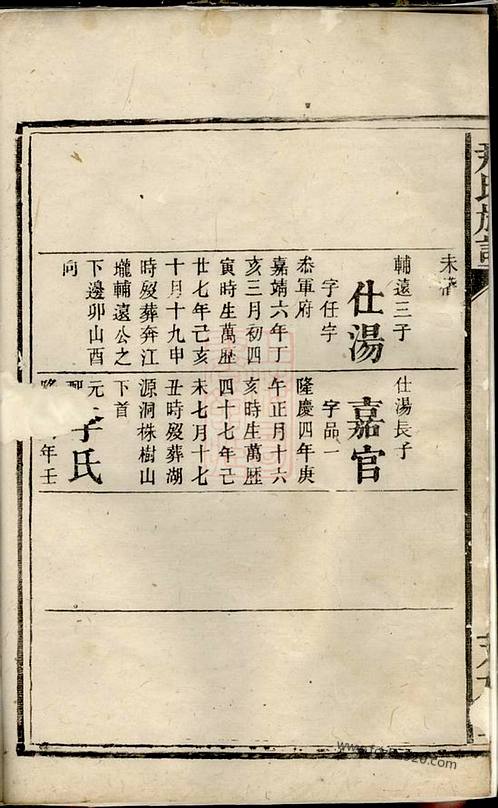 尹氏族譜
未
輔遠三子
仕湯
字任宇
叅軍府
嘉靖六年丁
亥三月初四
寅時生萬歴
廿七年己亥
十月十九申
時殁葬奔江
壠輔遠公之
下邊卯山酉
向
仕湯長子
嘉官
字品一
隆慶四年庚
午正月十六
亥時生萬歴
四十七年己
未七月十七
丑時殁葬湖
源洞株樹山
下首
元
李氏
年壬